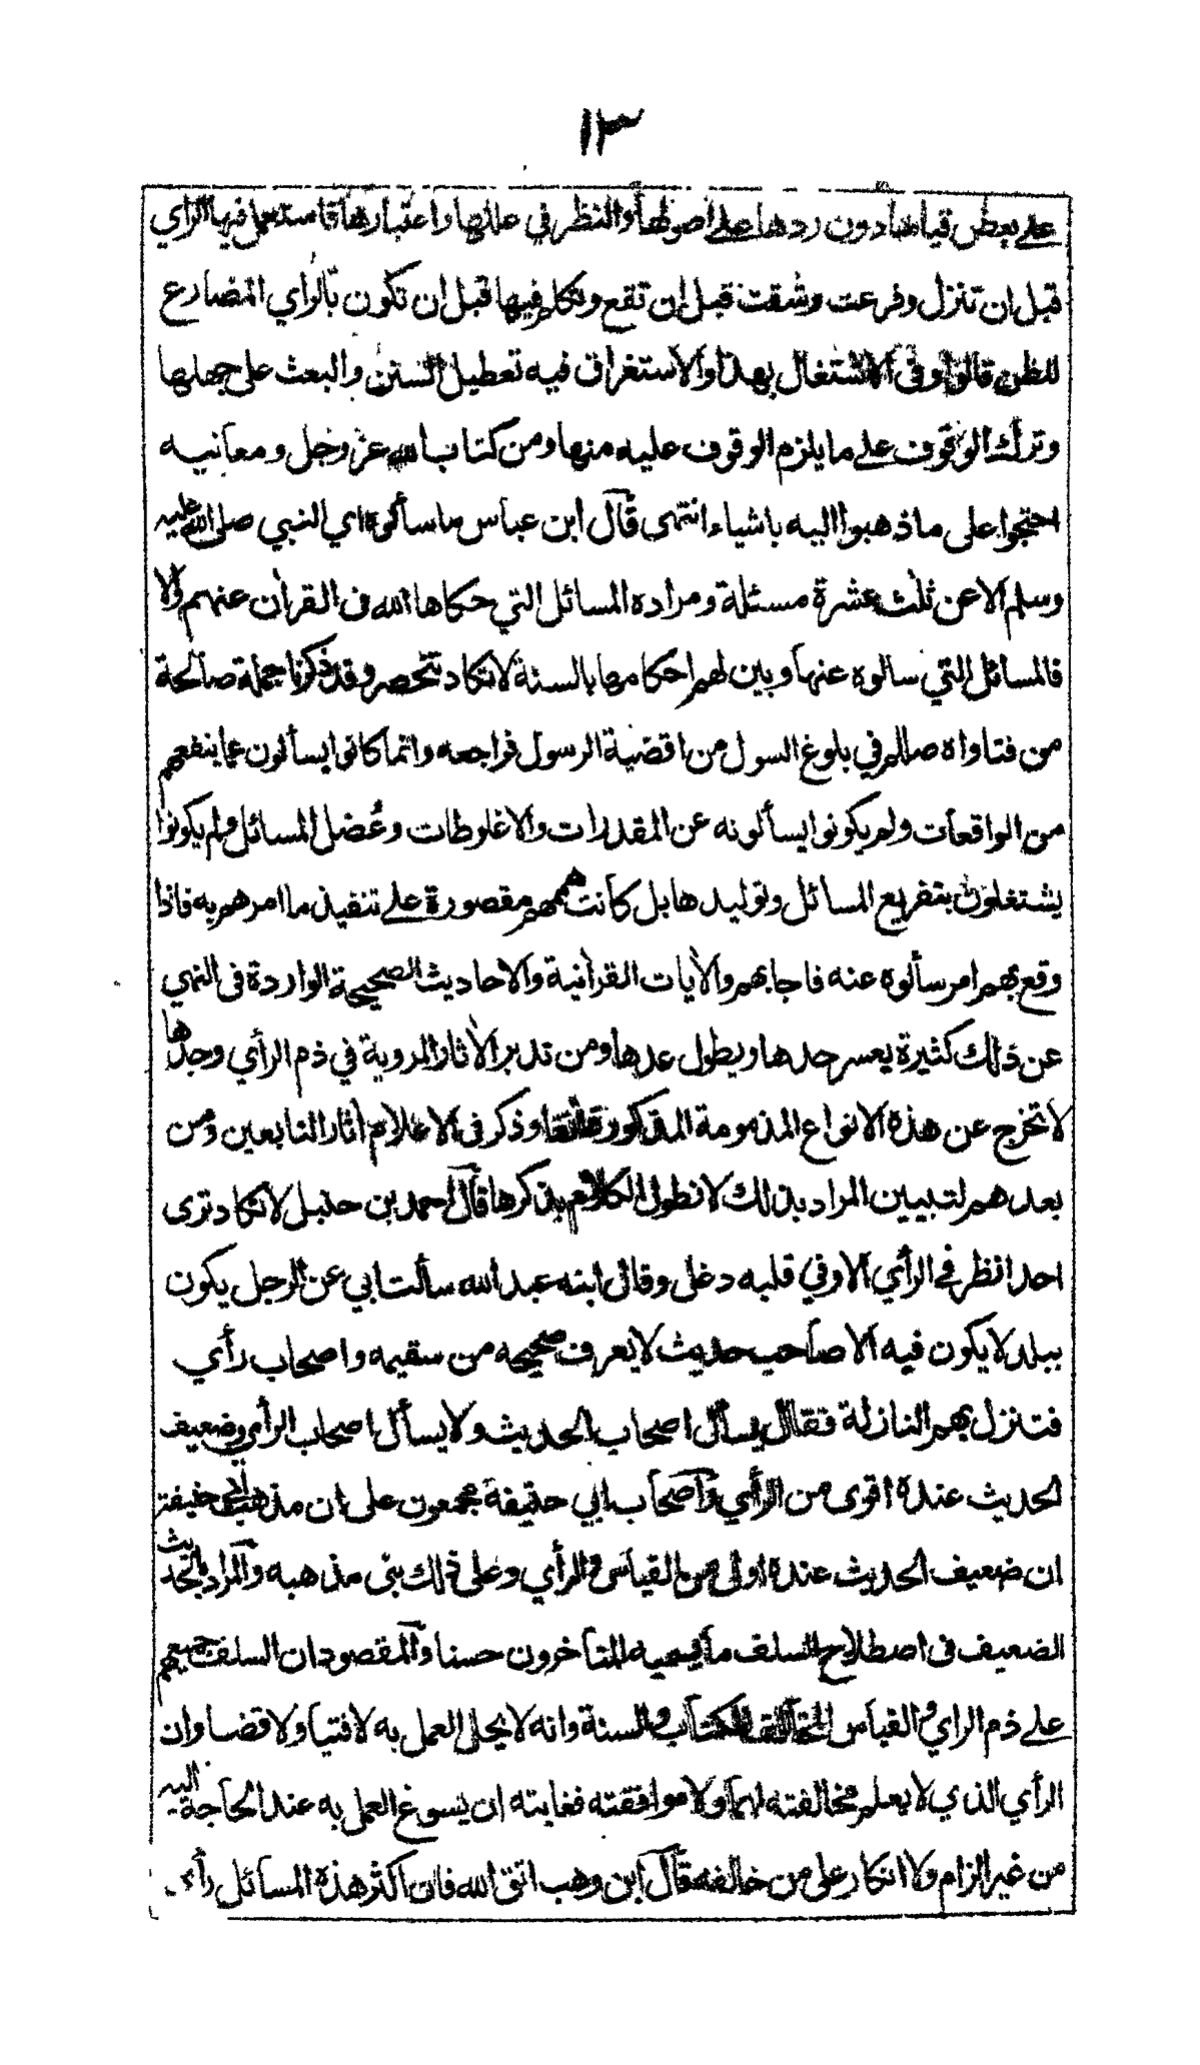 ١٣
على بعض قياسا دون ردها على أصولها والنظر في عللها واعتبارها فاستعمل فيها الرأي
قبل ان تنزل وفرعت وشققت قبل ان تقع وتكلم فيها قبل ان تكون بالراي المضارع
للظن قالوا وفي الاشتغال بهذا والاستغراق فيه تعطيل السنن والبعث على جهلها
وترك الوقوف على ما يلزم الوقوف عليه منها ومن كتاب الله عز وجل ومعانيه
احتجوا على ما ذهبوا اليه باشياء انتهى قال ابن عباس ما سألوه اي النبي صلى الله عليه
وسلم الا عن ثلث عشرة مسئلة ومراده المسائل التي حكاها الله في القرآن عنهم والا
فالمسائل التي سالوه عنها وبين لهم احكامها بالسنة لا تكاد تنحصر وقد ذكرنا جملة صالحة
من فتاواه صللم في بلوغ السول من اقضية الرسول فراجعه وانما كانوا يسألون عما ينفعهم
من الواقعات ولم يكونوا يسألونه عن المقدرات والاغلوطات وعُضل المسائل ولم يكونوا
يشتغلون بتفريع المسائل وتوليدها بل كانت هممهم مقصورة على تنفيذ ما امرهم به فاذا
وقع بهم امر سألوه عنه فاجابهم والآيات القرآنية والاحاديث الصحيحة الواردة في النهي
عن ذلك كثيرة يعسر حدها ويطول عدها ومن تدبر الآثار المروية في ذم الرأي وجدها
لا تخرج عن هذه الانواع المذمومة المذكورة آنفا وذكر في الاعلام آثار التابعين ومن
بعدهم لتبيين المراد بذلك لا نطول الكلام بذكرها قال احمد بن حنبل لا تكاد ترى
احدا نظر في الرأي الا وفي قلبه دغل وقال ابنه عبد الله سألت ابي عن الرجل يكون
ببلد لا يكون فيه الا صاحب حديث لا يعرف صحيحه من سقيمه واصحاب رأي
فتنزل بهم النازلة فقال يسأل اصحاب الحديث ولا يسأل اصحاب الرأي وضعيف
الحديث عنده اقوى من الرأي واصحاب ابي حنيفة مجمعون على ان مذهب ابي حنيفة
ان ضعيف الحديث عنده اولى من القياس والرأي وعلى ذلك بنى مذهبه والمراد بالحديث
الضعيف في اصطلاح السلف ما يسميه المتأخرون حسنا والمقصود ان السلف جميعهم
على ذم الراي والقياس المخالف للكتاب والسنة وانه لا يحل العمل به لا فتيا ولا قضا وان
الرأي الذي لا يعلم مخالفته لهما ولا موافقته فغايته ان يسوغ العمل به عند الحاجة اليه
من غير الزام ولا انكار على من خالفه قال ابن وهب اتق الله فان اكثر هذه المسائل رأي